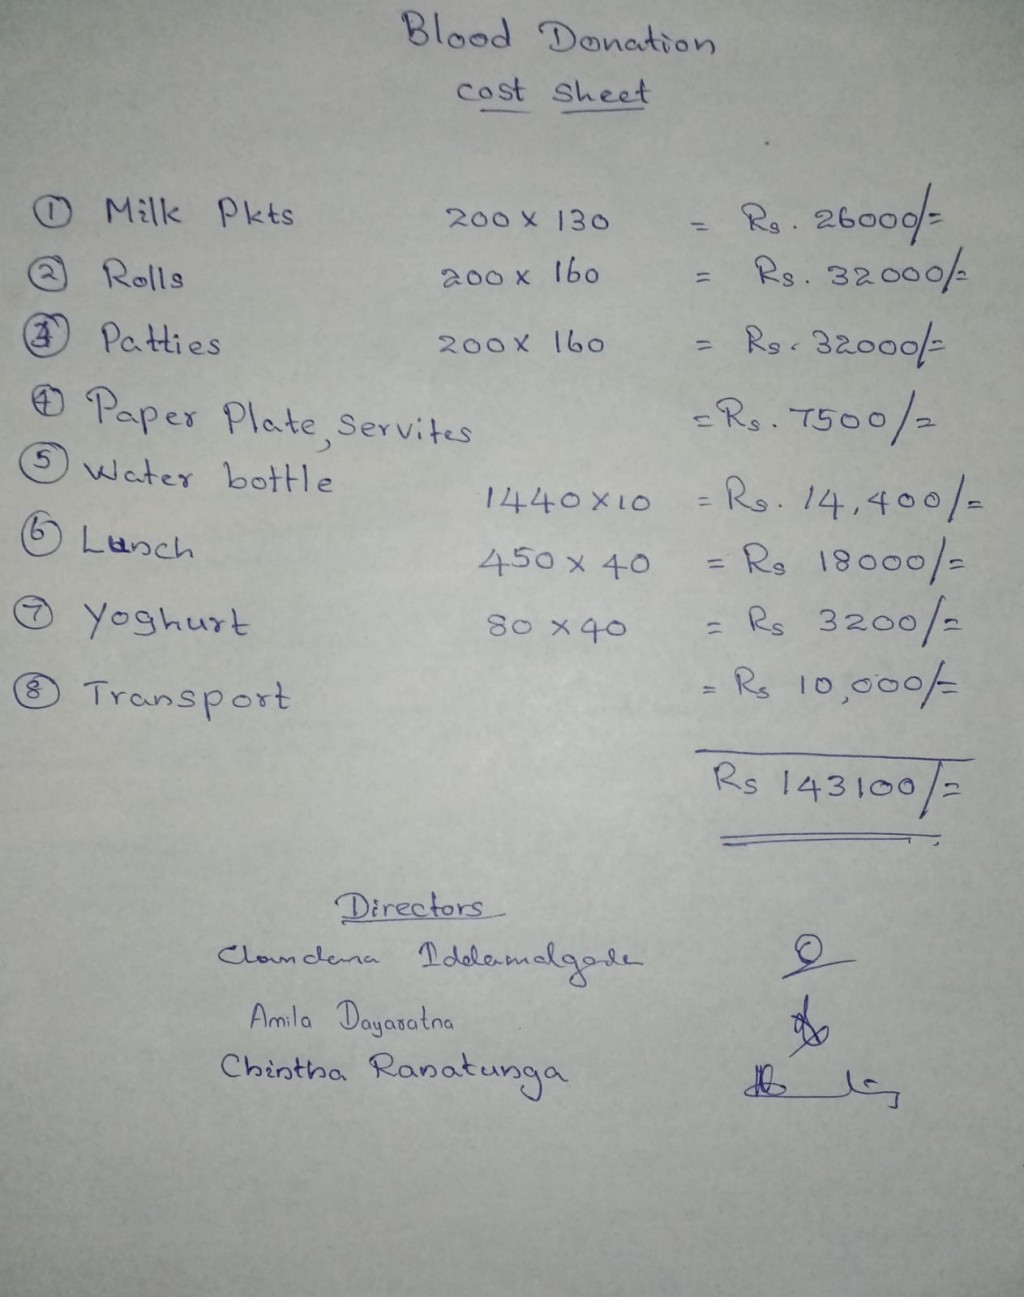 Blood Donation
cost sheet
① Milk Pkts 200 x 130 = Rs. 26000/=
② Rolls 200 x 160 = Rs. 32000/=
③ Patties 200 x 160 = Rs. 32000/=
④ Paper Plate, Servites = Rs. 7500/=
⑤ Water bottle 1440 x 10 = Rs. 14,400/=
⑥ Lunch 450 x 40 = Rs 18000/=
⑦ Yoghurt 80 x 40 = Rs 3200/=
⑧ Transport = Rs 10,000/=
Rs 143100/=
Directors
Chandana Iddamalgoda
Amila Dayaratna
Chintha Ranatunga